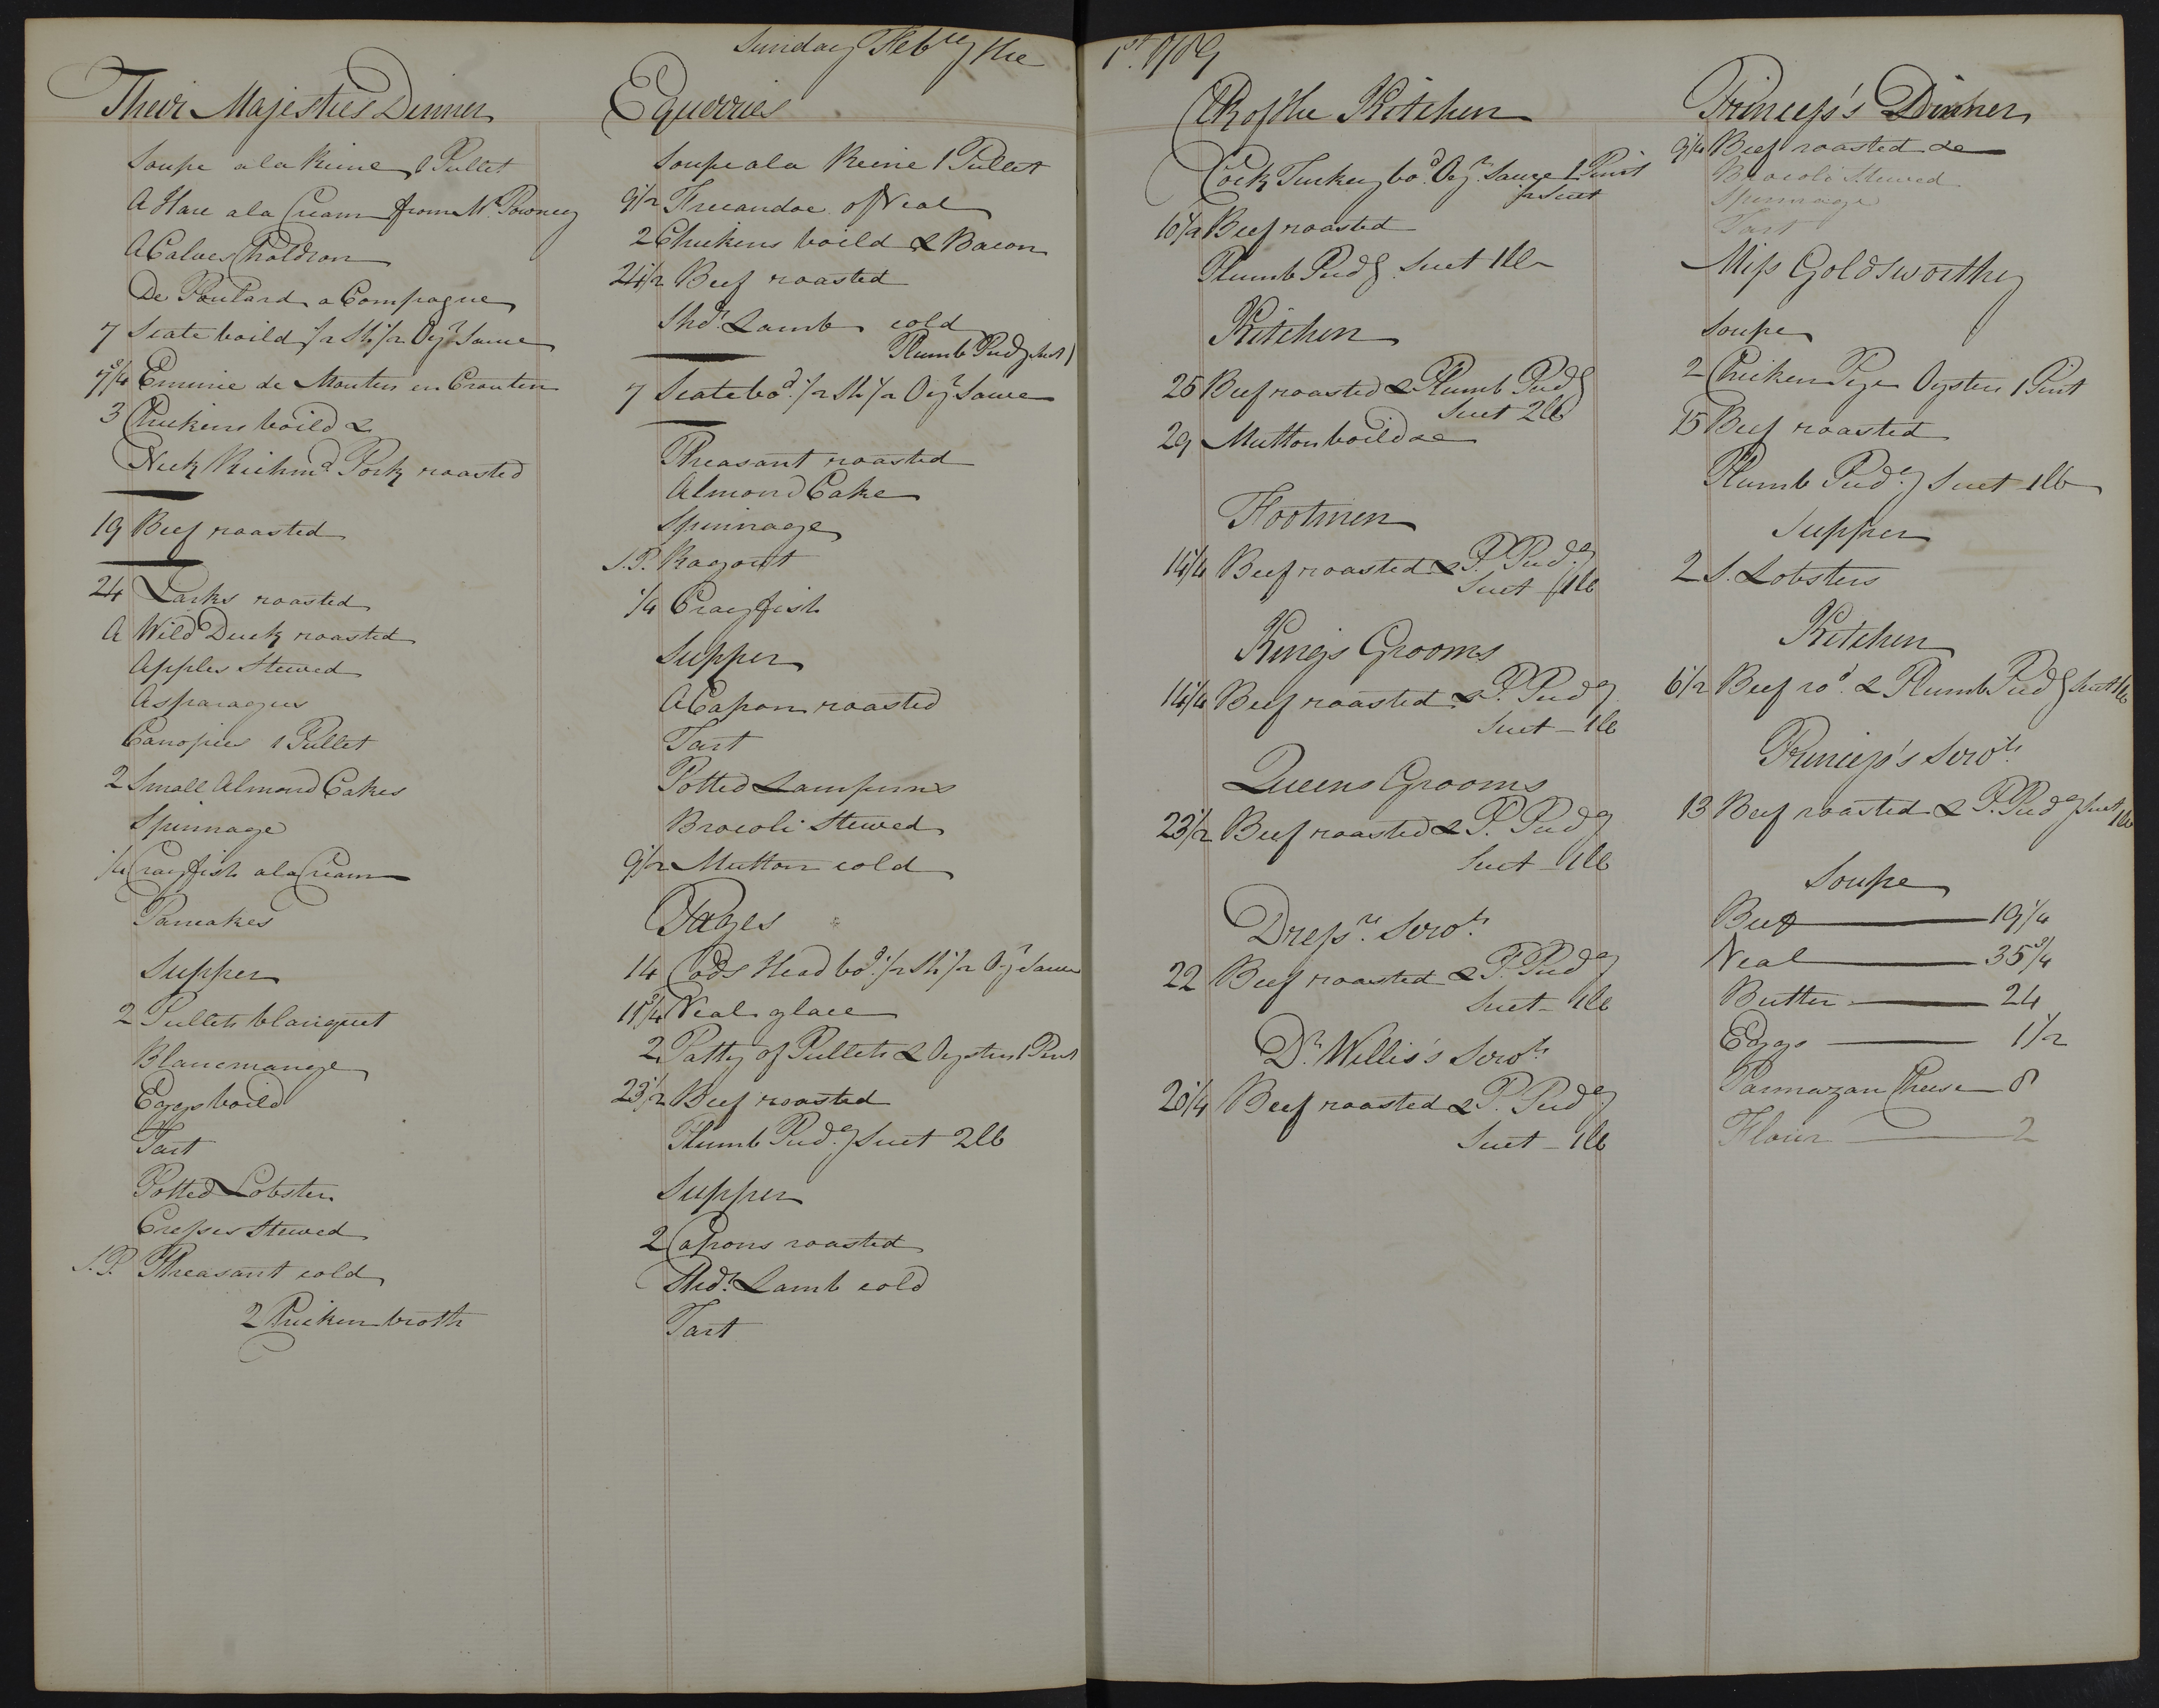 Sunday Feb.ry the 1st. 1789
Their Majesties Dinner
Soupe a la Reine 1 Pullet
A Hare a la Cream from Mr. Powney
A Calves Choldron
De Poulard a Compagne
7 Scate boild 1/2 Sh 1/2 Oyr. Sauce
7 3/4 Emince de Mouton en Crouten
3 Chickens boild &
Neck Richmd. Pork roasted
19 Beef roasted
24 Larks roasted
A Wild Duck roasted
Apples Stewed
Asparagus
Canopies 1 Pullet
2 Small Almond Cakes
Spinnage
1/4 Crayfish a la Cream
Pancakes
Supper
2 Pullets blanquet
Blancmange
Eggs boild
Tart
Potted Lobster
Cresses Stewed
S.P. Pheasant cold
2 Chicken broth
Equerries
Soupe a la Reine 1 Pullet
9 1/2 Frecandoe of Veal
2 Chickens boild & Bacon
24 1/2 Beef roasted
Shdr. Lamb cold
Plumb Pudg Suet 1
7 Scate bod. 1/2 Sh 1/2 Oyr. Sauce
Pheasant roasted
Almond Cake
Spinnage
S.P. Ragout
1/4 Crayfish
Supper
A Capon roasted
Tart
Potted Lamperns
Brocoli Stewed
9 1/2 Mutton cold
Pages
14 Cods Head bod. 1/2 Sh 1/2 Oyr. Sauce
11 3/4 Veal glace
2 Patty of Pullets & Oysters 1 Pint
23 1/2 Beef roasted
Plumb Pud.g Suet 2lb
Supper
2 Capons roasted
Shdr. Lamb cold
Tart
Clk of the Kitchen
Cock Turkey bod. Oyr. Sauce 1 Pint
1/2 Suet
10 1/2 Beef roasted
Plumb Pudg Suet 1lb
Kitchen
25 Beef roasted & Plumb Pudg
Suet 2lb
29 Mutton boild &c
Footmen
14 1/4 Beef roasted & P. Pud.g
Suet 1lb
Kings Grooms
14 1/4 Beef roasted & P. Pudg
Suet - 1lb
Queens Grooms
23 1/2 Beef roasted & P. Pudg
Suet - 1lb
Dressrs. Servts.
22 Beef roasted & P. Pudg
Suet - 1lb
Dr. Willis's Servts.
20 1/4 Beef roasted & P. Pudg
Suet - 1lb
Princess's Dinner
9 1/4 Beef roasted &c
Brocoli Stewed
Spinnage
Tart
Miss Goldsworthy
Soupe
2 Chicken Pye Oysters 1 Pint
15 Beef roasted
Plumb Pud.g Suet 1lb
Supper
2 S. Lobsters
Kitchen
6 1/2 Beef rod. & Plumb Pudg Suet 1lb
Princess's Servts.
13 Beef roasted & P. Pudg Suet 1lb
Soupe
Beef 19 1/4
Veal 35 3/4
Butter 24
Eggs 1 1/2
Parmazan Cheese 8
Flour 2